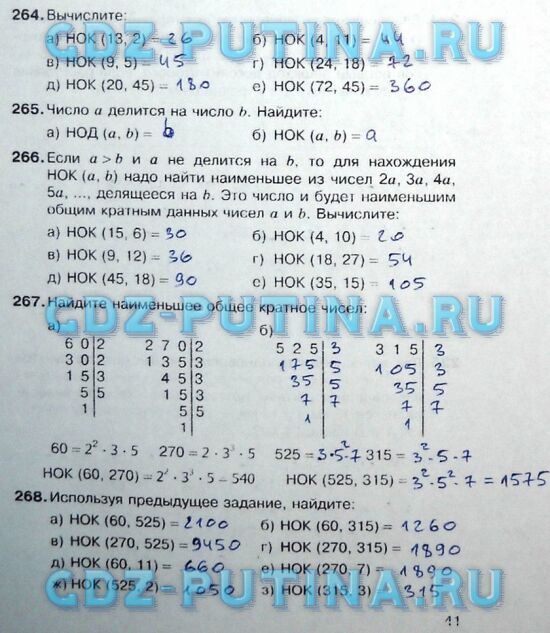 264. Вычислите:
а) НОК (13, 2) = 26 б) НОК (4, 11) = 44
в) НОК (9, 5) = 45 г) НОК (24, 18) = 72
д) НОК (20, 45) = 180 е) НОК (72, 45) = 360
GDZ-PUTINA.RU
265. Число a делится на число b. Найдите:
а) НОД (a, b) = b б) НОК (a, b) = a
266. Если a > b и a не делится на b, то для нахождения
НОК (a, b) надо найти наименьшее из чисел 2a, 3a, 4a,
5a, ..., делящееся на b. Это число и будет наименьшим
общим кратным данных чисел a и b. Вычислите:
а) НОК (15, 6) = 30 б) НОК (4, 10) = 20
в) НОК (9, 12) = 36 г) НОК (18, 27) = 54
д) НОК (45, 18) = 90 е) НОК (35, 15) = 105
GDZ-PUTINA.RU
267. Найдите наименьшее общее кратное чисел:
а) б)
6 0 | 2 2 7 0 | 2 5 2 5 | 3 3 1 5 | 3
3 0 | 2 1 3 5 | 3 175 | 5 105 | 3
1 5 | 3 4 5 | 3 35 | 5 35 | 5
5 | 5 1 5 | 3 7 | 7 7 | 7
1 | 5 | 5 1 | 1 |
1 |
60 = 2² · 3 · 5 270 = 2 · 3³ · 5 525 = 3·5²·7 315 = 3²·5·7
НОК (60, 270) = 2² · 3³ · 5 = 540 НОК (525, 315) = 3²·5²·7 = 1575
268. Используя предыдущее задание, найдите:
а) НОК (60, 525) = 2100 б) НОК (60, 315) = 1260
в) НОК (270, 525) = 9450 г) НОК (270, 315) = 1890
д) НОК (60, 11) = 660 е) НОК (270, 7) = 1890
ж) НОК (525, 2) = 1050 з) НОК (315, 3) = 315
GDZ-PUTINA.RU
41